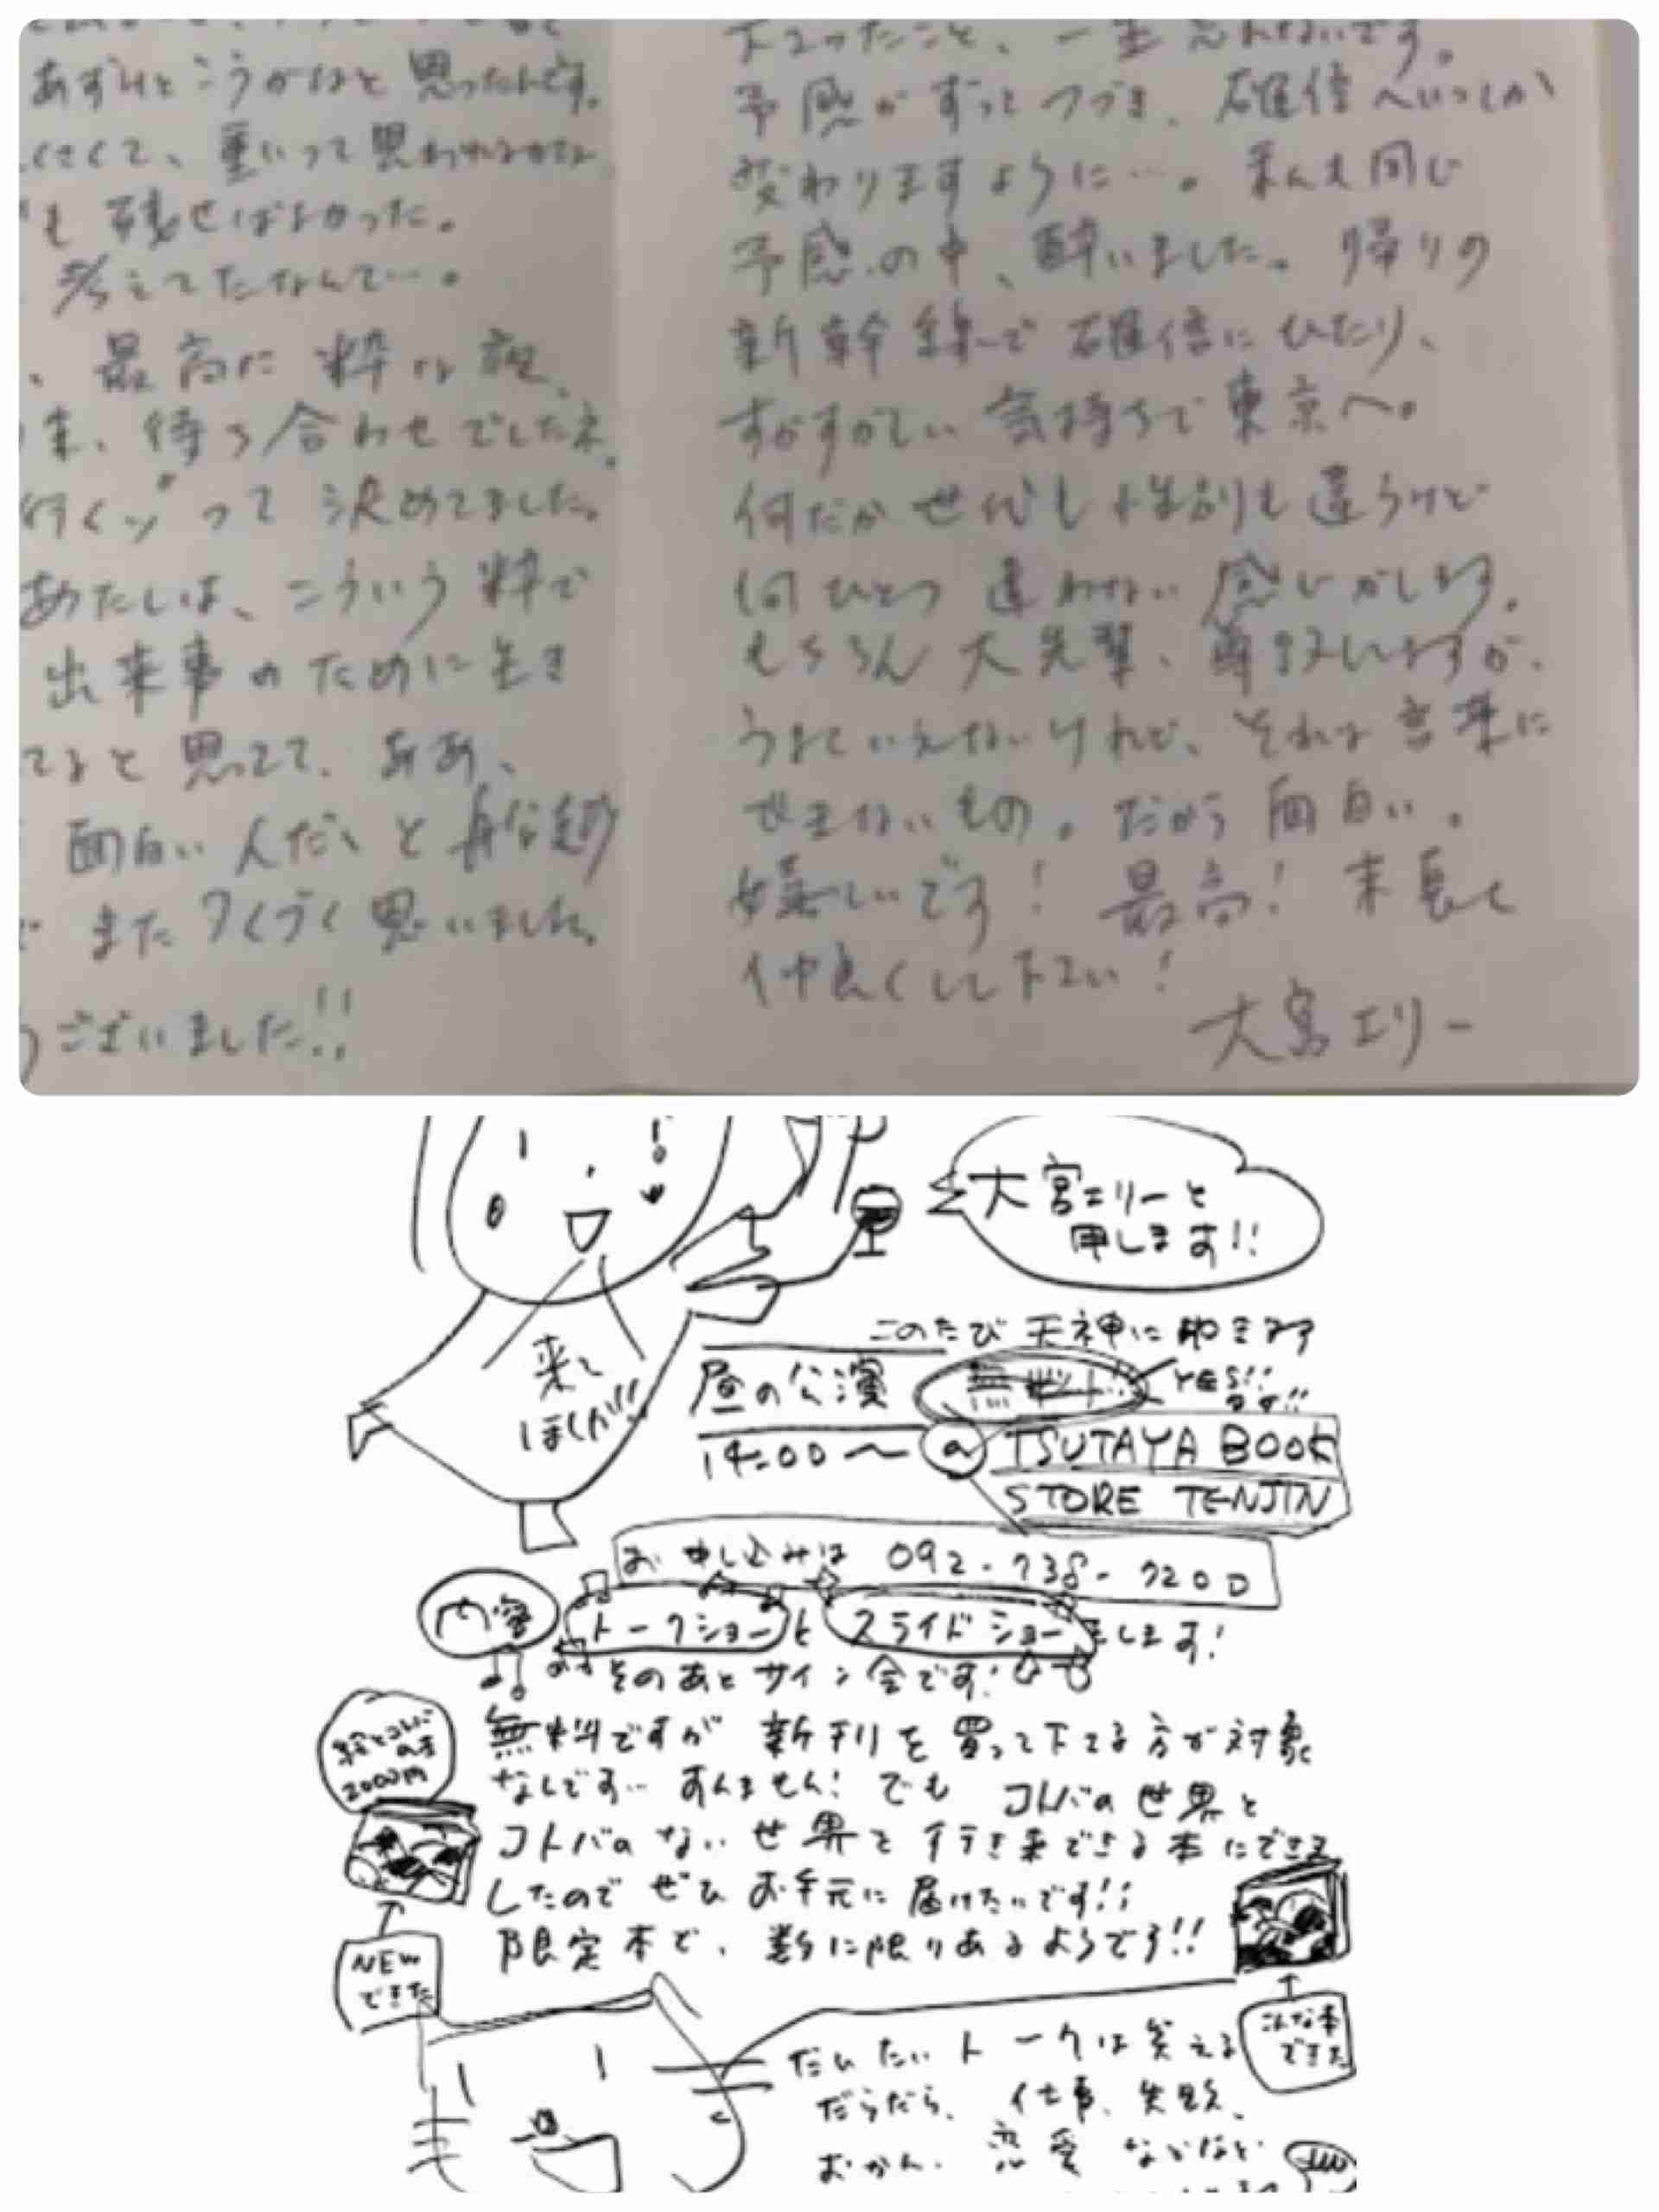 あずけとこうかなと思ったんです。
くさくて、重いって思われるかな
も残せばよかった。
考えてたなんて…。
、最高に粋な夜、
来、待ち合わせでしたネ。
行くッ”って決めてました。
あたしは、こういう粋で
出来事のために生き
てると思ってて、ああ、
面白い人だ、と
またつくづく思いました。
うございました!!
ったこと、一生忘れないです。
予感がずっとつづき、確信へいつしか
変わりますように…。まんま同じ
予感の中、酔いました。帰りの
新幹線で確信にひたり、
すがすがしい気持ちで東京へ。
何だか世代も性別も違うけど
何ひとつ違わない感じがします。
もちろん大先輩、尊敬していますが、
うまくいえないけれど、それは言葉に
できないもの。だから面白い。
嬉しいです!最高!末長く
仲良くして下さい!
大宮エリー
大宮エリーと
申します!!
来て
ほしい!!
このたび天神に
昼の公演 無料!! YES!!
14:00〜 @ TSUTAYA BOOK
STORE TENJIN
お申し込みは 092-738-7200
内容 トークショーと スライドショーをします!
そのあとサイン会です!
絵とコトバの本
2000円
無料ですが 新刊を買って下さる方が対象
なんです… すんません! でも コトバの世界と
コトバのない世界を行き来できる本にできま
したので ぜひ お手元に届けたいです!!
限定本で、数に限りあるようです!!
NEW
できた
こんな本
できた
だいたいトークは笑える
だらだら、仕事、失敗、
おかん、恋愛 などなど